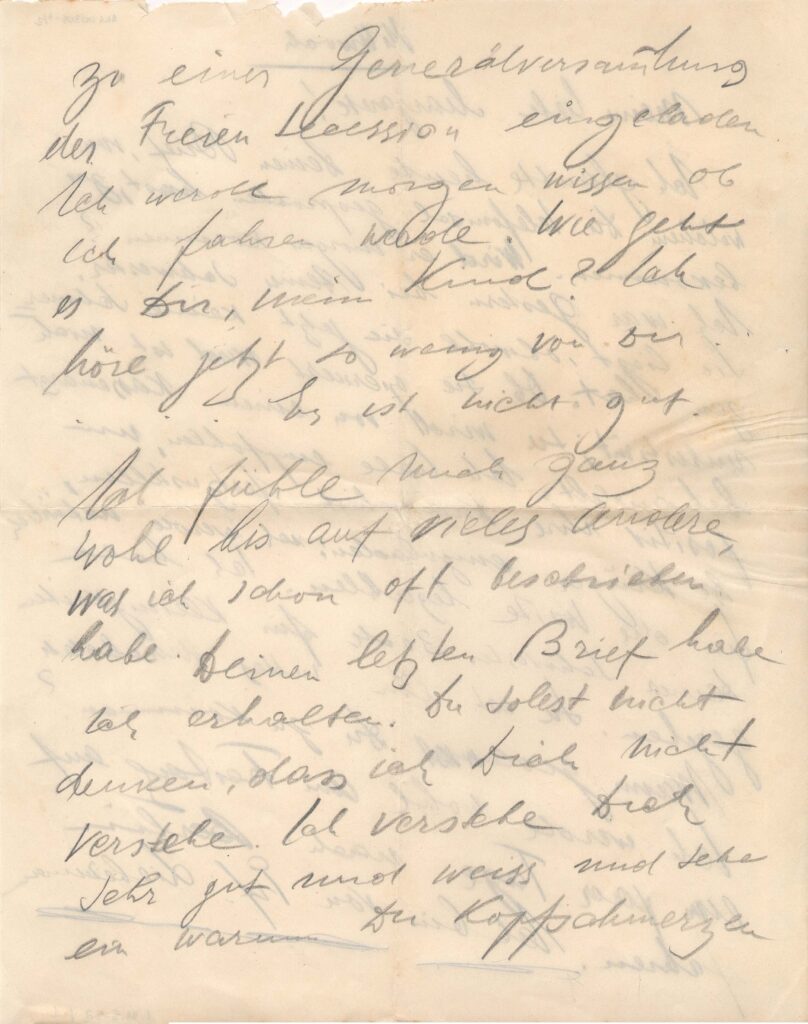 zu einer Generalversamlung
der Freien Secession eingeladen
Ich werde morgen wissen ob
ich fahren werde. Wie geht
es Dir, mein Kind? Ich
höre jetzt so wenig von Dir.
Es ist nicht gut.
Ich fühle mich ganz
wohl bis auf vieles Andere,
was ich schon oft beschrieben
habe. Deinen letzten Brief habe
ich erhalten. Du sollst nicht
denken, dass ich Dich nicht
verstehe. Ich verstehe Dich
sehr gut und weiss und sehe
ein warum Du Kopfschmerzen